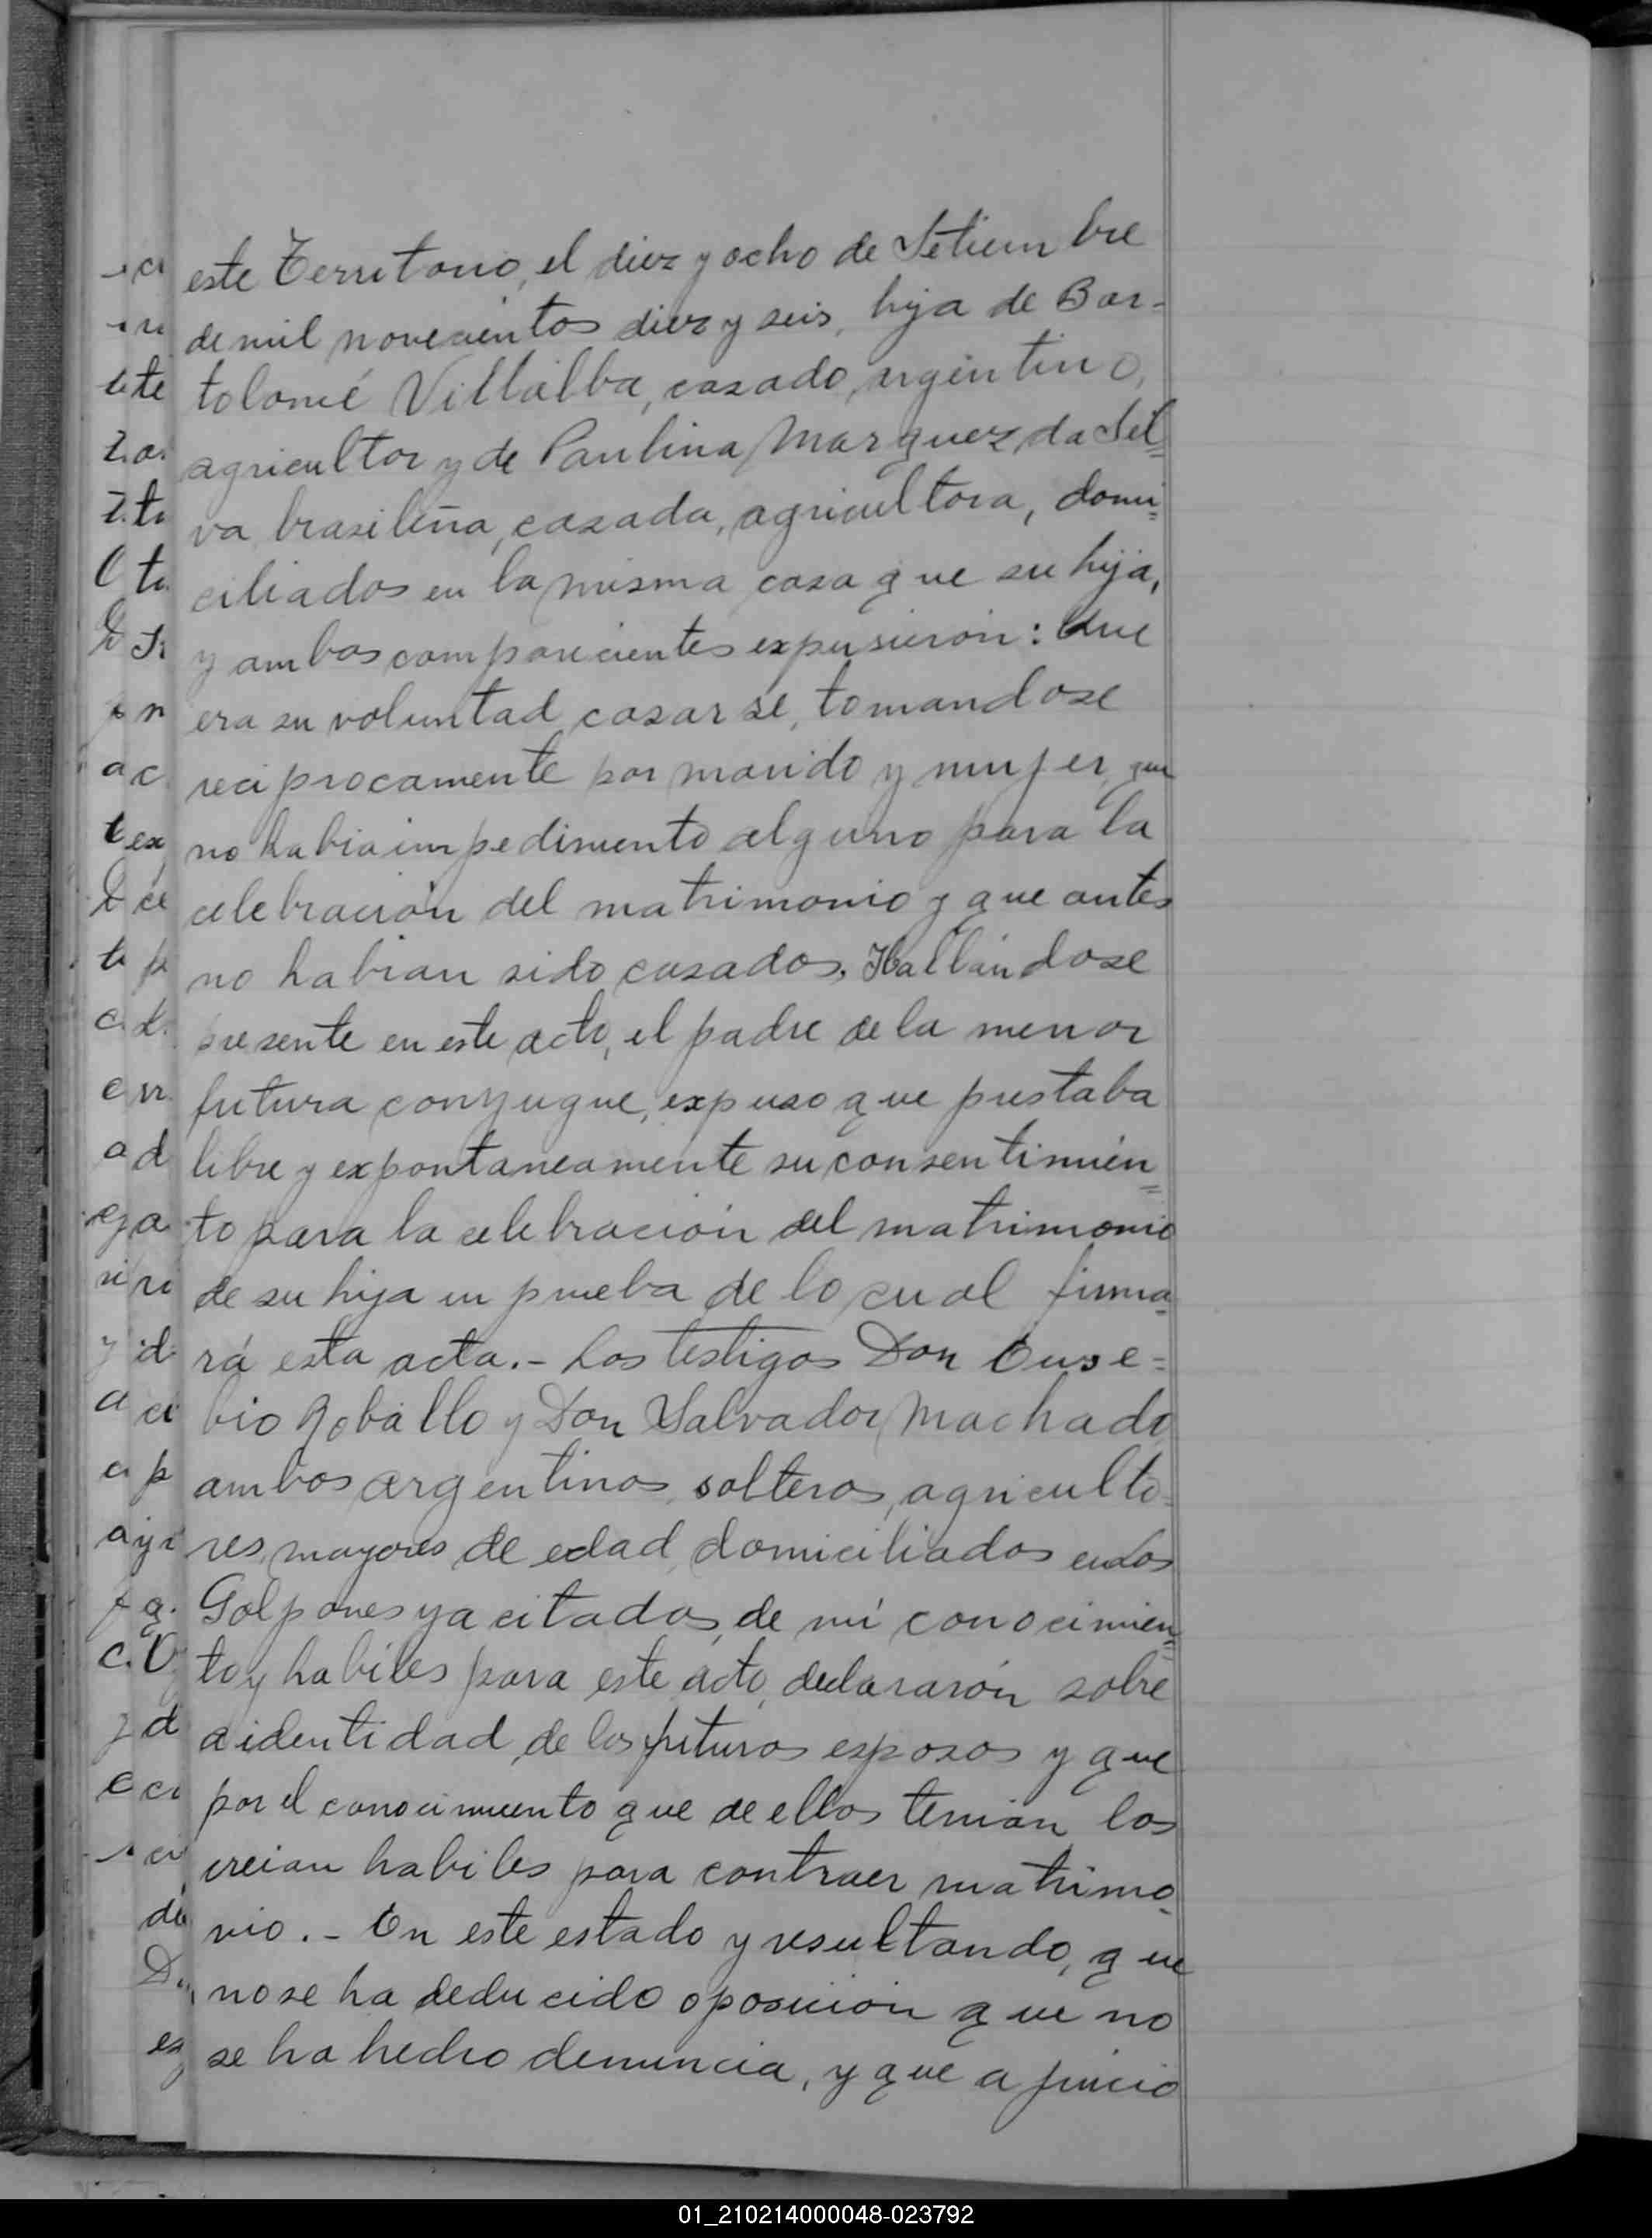 este Territorio, el diez y ocho de Setiembre
de mil novecientos diez y seis, hija de Bar-
tolomé Villalba, casado, argentino,
agricultor y de Paulina Marquez da Sil=
va brasileña, casada, agricultora, domi=
ciliados en la misma casa que su hija,
y ambos comparecientes expusieron: Que
era su voluntad casarse, tomandose
reciprocamente por marido y mujer, que
no habia impedimento alguno para la
celebración del matrimonio y que antes
no habian sido casados. Hallándose
presente en este acto, el padre de la menor
futura conyugue, expuso que prestaba
libre y expontaneamente su consentimien=
to para la celebración del matrimonio
de su hija en prueba de lo cual firma-
rá esta acta.- Los testigos Don Euse=
bio Roballo y Don Salvador Machado
ambos argentinos, solteros, agriculto-
res, mayores de edad, domiciliados en los
Galpones ya citados, de mi conocimien=
to y habiles para este acto, declararón sobre
a identidad de los futuros esposos y que
por el conocimiento que de ellos tenian los
creian habiles para contraer matrimo-
nio.- En este estado y resultando, que
no se ha deducido oposición que no
se ha hecho denuncia, y que a juicio
01_210214000048-023792